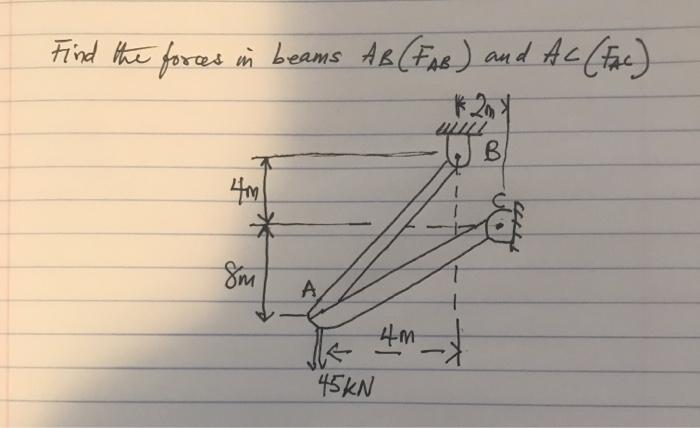 Find the forces in beams AB (FAB) and AC (FAC)
2m
B
4m
C
8m
A
4m
45KN